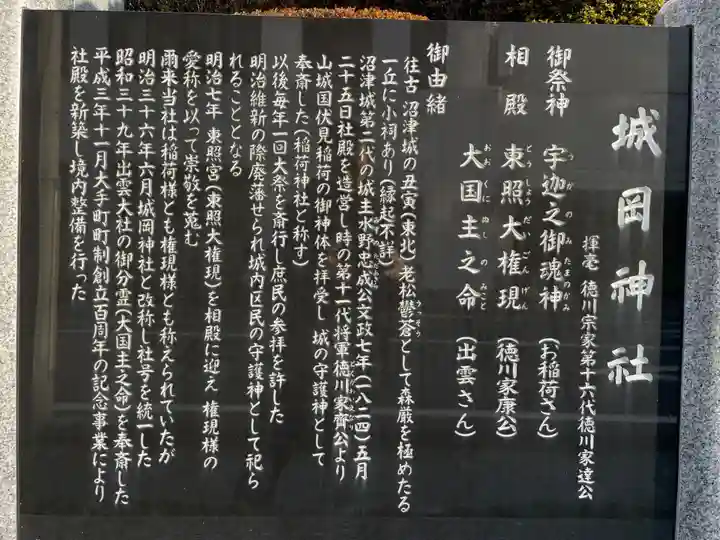 城岡神社
揮毫 徳川宗家第十六代徳川家達公
御祭神 宇迦之御魂神（お稲荷さん）
うかのみたまのかみ
相殿 東照大権現（徳川家康公）
とうしょうだいごんげん
大国主之命（出雲さん）
おおくにぬしのみこと
御由緒
往古 沼津城の丑寅（東北）老松鬱蒼として森厳を極めたる
うっそう
一丘に小祠あり（縁起不詳）
沼津城第二代の城主水野忠成公文政七年（一八二四）五月
二十五日社殿を造営し時の第十一代将軍徳川家齊公より
山城国伏見稲荷の御神体を拝受し 城の守護神として
奉斎した（稲荷神社と称す）
以後毎年一回大祭を斎行し庶民の参拝を許した
明治維新の際廃藩せられ城内区民の守護神として祀ら
れることとなる
明治七年 東照宮（東照大権現）を相殿に迎え 権現様の
愛称を以って崇敬を蒐む
爾来当社は稲荷様とも権現様とも称えられていたが
明治三十六年六月城岡神社と改称し社号を統一した
昭和三十九年出雲大社の御分霊（大国主之命）を奉斎した
平成三年十一月大手町町制創立百周年の記念事業により
社殿を新築し境内整備を行った